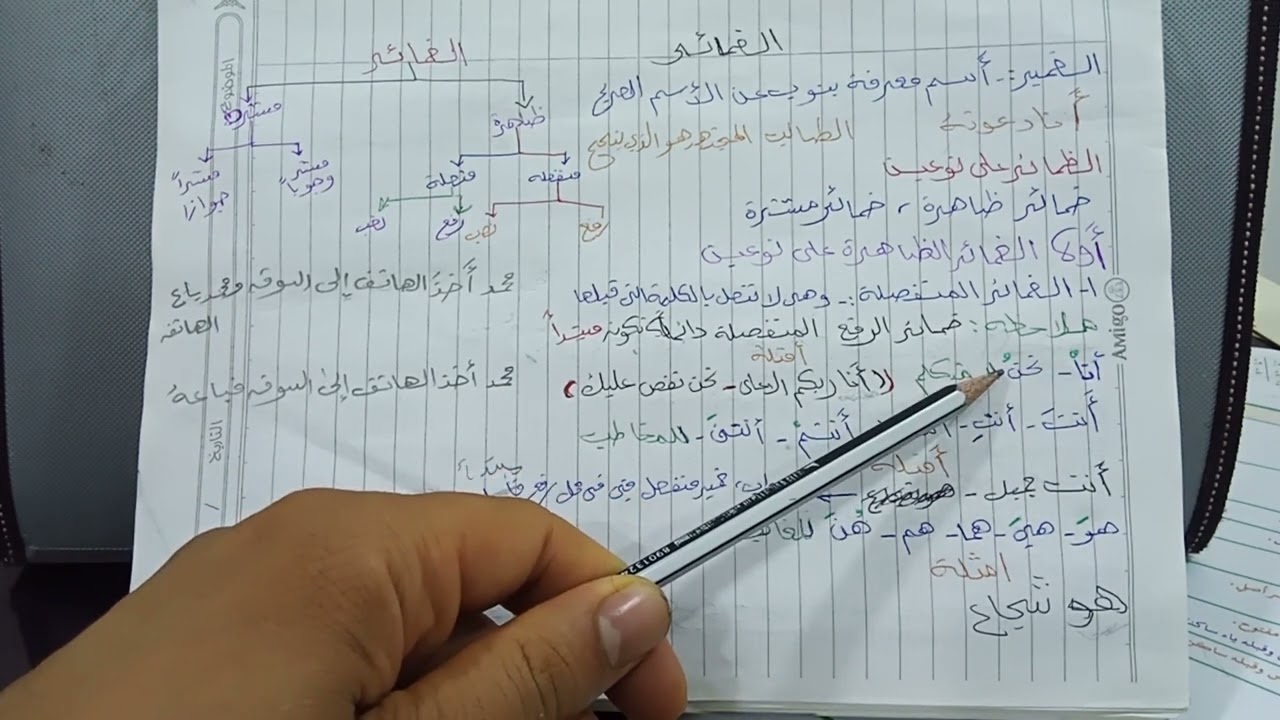 الضمائر
الضمير:- أسم معرفة ينوب عن الأسم الصريح
أنا دعوته
الطالب المجتهد هو الذي ينجح
الظمائر على نوعين
ضمائر ظاهرة ، ضمائر مستترة
أولاً الضمائر الظاهرة على نوعين
١- الضمائر المنفصلة :- وهي لا تتصل بالكلمة التي قبلها
ملاحظة : ضمائر الرفع المنفصلة دائماً تكون مبتدأ
أمثلة
أنا - نحنُ متكلم (( أنا ربكم الاعلى - نحن نقص عليك ))
أنتَ - أنتِ - أنتمْ - أنتنَ - للمخاطب
أمثلة
أنت جميل - ضمير منفصل مبني في محل رفع مبتدأ
هوَ - هيَ - هما - هم - هُنَّ
امثلة
هو شجاع
الضمائر
ظاهرة
مستترة
منفصلة
متصلة
مستتر وجوباً
مستتراً جوازاً
رفع
نصب
رفع
نصب
محمد أَخذَ الهاتف إلى السوق ومحمد باع
الهاتف
محمد أخذ الهاتف إلى السوق فباعهُ
Amigo
الموضوع
التاريخ
/